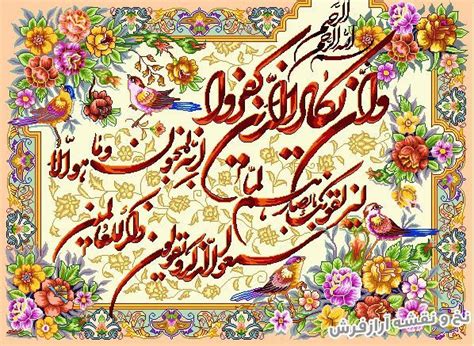 بسم الله الرحمن الرحیم
وان یکاد الذین کفروا
لیزلقونک بابصارهم لما
سمعوا الذکر و یقولون
انه لمجنون وما هو الا
ذکر للعالمین
نخ و نقشه آرازفرش